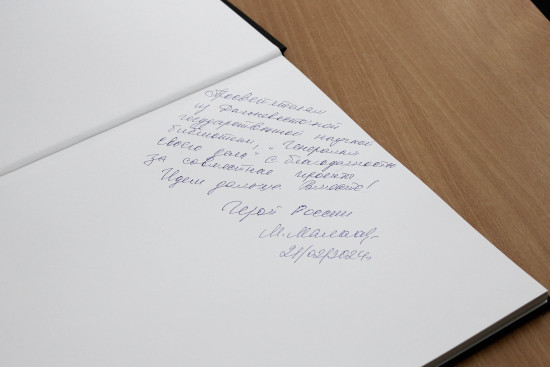 Просветителям
из Дальневосточной
государственной научной
библиотеки, "Генералам
своего дела", с благодарностью
за совместные проекты
Идем дальше. Вместе!
Герой России
М. Малахов
21/02/2024г.